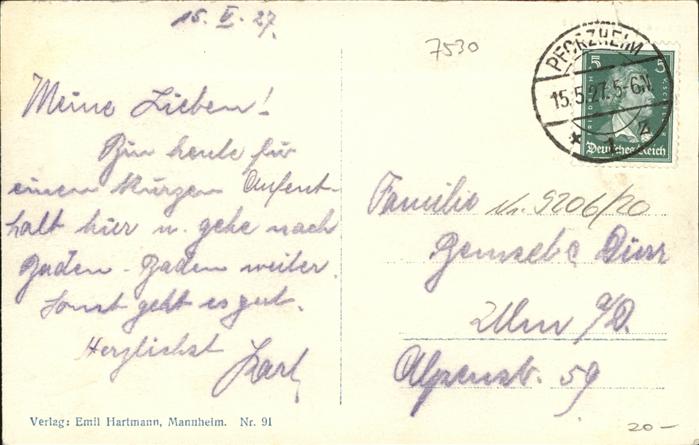 15. V. 27.
7530
PFORZHEIM
15.5.27.5-6N.
* 1 z
5 5
FRIEDRICH V. SCHILLER
Deutsches Reich
Meine Lieben!
Bin heute für
einen kurzen Aufent-
halt hier u. gehe nach
Baden-Baden weiter.
Sonst geht es gut.
Herzlichst
Karl
Familie Nr. 9206/20
Dürr
Ulm a/D.
Alpenstr. 59
Verlag: Emil Hartmann, Mannheim. Nr. 91
20-